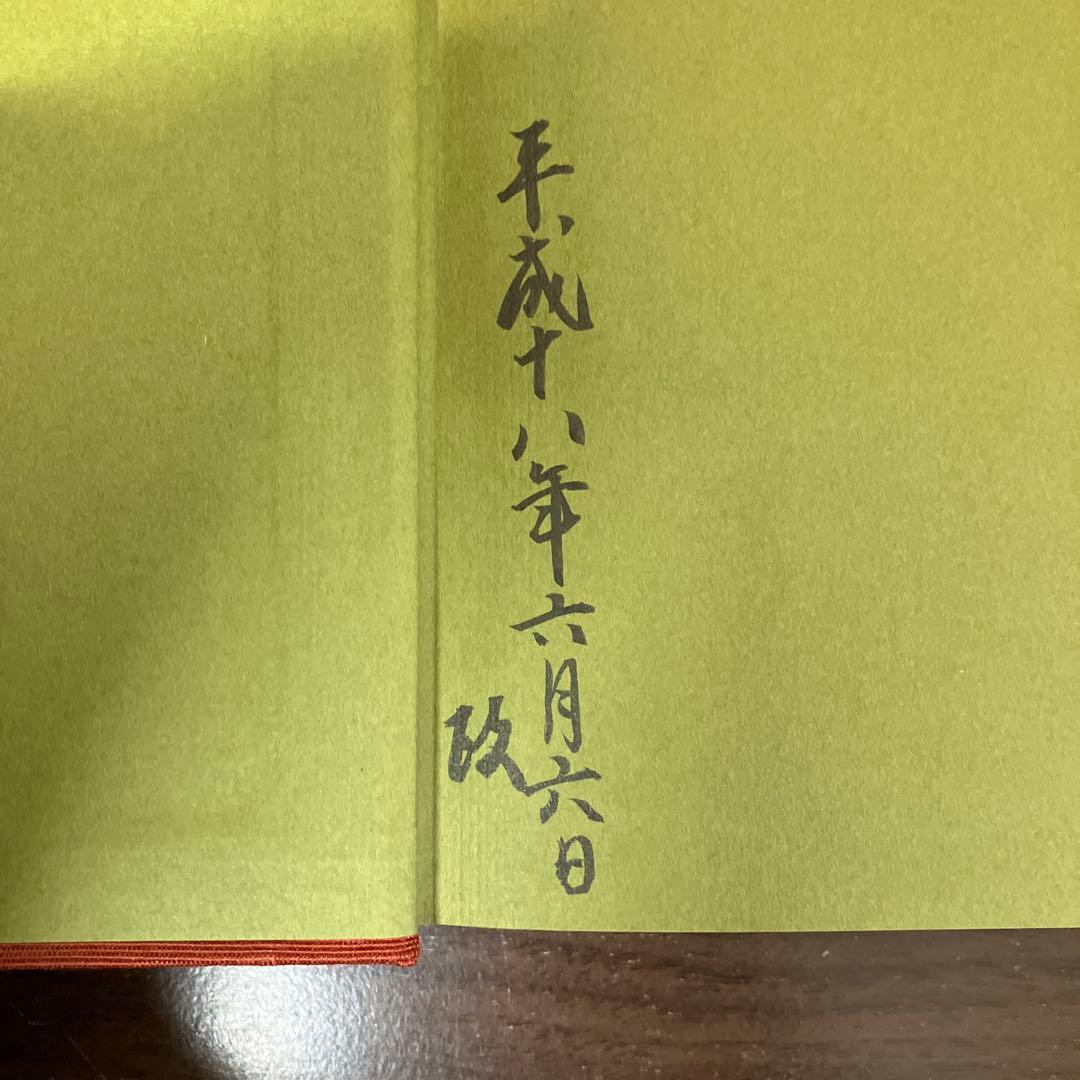 平成十八年六月六日
改